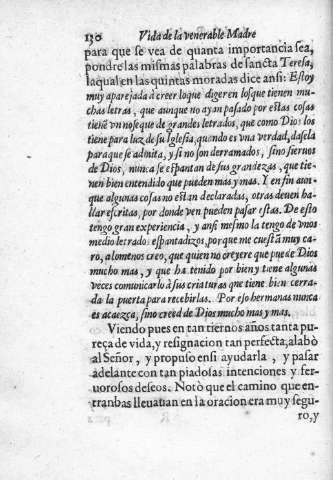 130 Vida de la venerable Madre
para que se vea de quanta importancia sea,
pondre las mismas palabras de sancta Teresa,
la qual en las quintas moradas dice ansi: Estoy
muy aparejada à creer loque digeren losque tienen mu-
chas letras, que aunque no ayan pasado por estas cosas
tienē vn noseque de grandes letrados, que como Dios los
tiene para luz de su Iglesia, quando es vna verdad, dasela
paraque se admita, y si no son derramados, sino sieruos
de Dios, nunca se espantan de sus grandezas, que tie-
nen bien entendido que pueden mas y mas. I en fin aun-
que algunas cosas no estan declaradas, otras deuen ha-
llar escritas, por donde ven pueden pasar estas. De esto
tengo gran experiencia, y ansi mesmo la tengo de vnos
medio letrados espantadizos, porque me cuestā muy ca-
ro, alomenos creo, que quien no creyere que puede Dios
mucho mas, y que ha tenido por bien y tiene algunas
veces comunicarlo à sus criaturas que tiene bien cerra-
da la puerta para recebirlas. Por eso hermanas nunca
es acaezca, sino creed de Dios mucho mas y mas.
Viendo pues en tan tiernos años tanta pu-
reça de vida, y resignacion tan perfecta, alabò
al Señor, y propuso ensi ayudarla, y pasar
adelante con tan piadosas intenciones y fer-
uorosos deseos. Notò que el camino que en-
trambas lleuauan en la oracion era muy segu-
ro, y